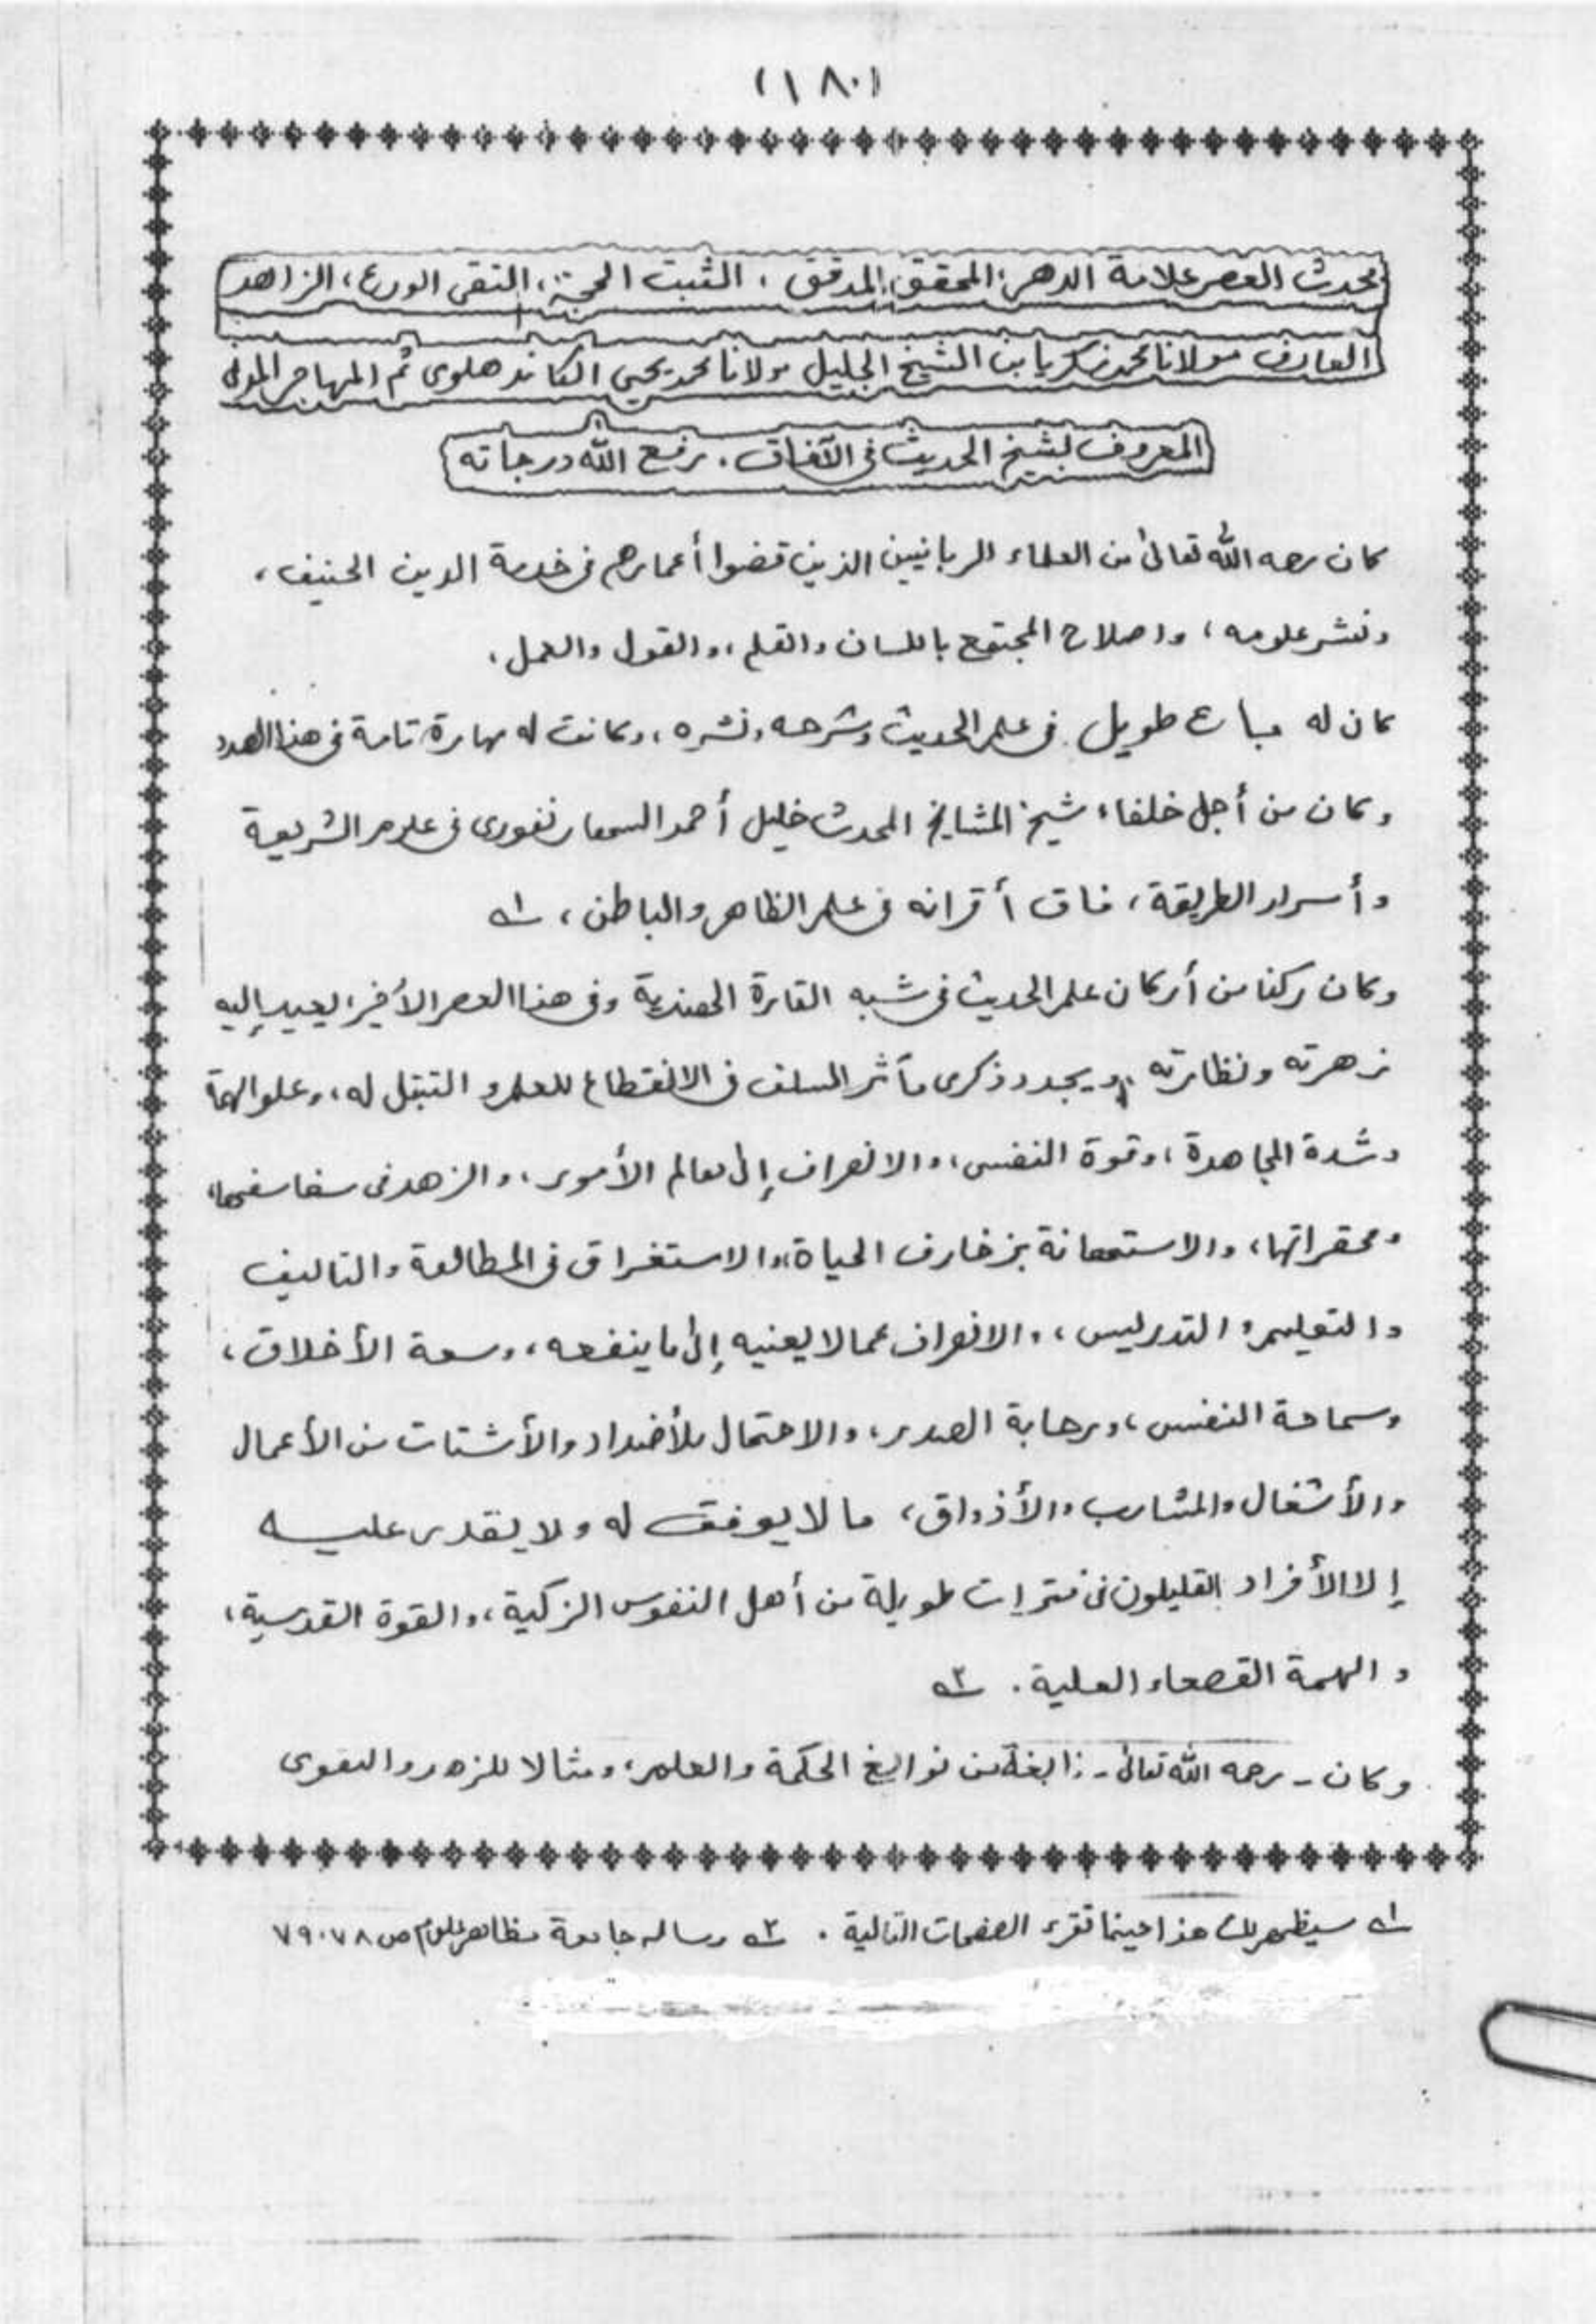 (١٨٠)
محدث العصر علامة الدهر، المحقق المدقق، الثبت الحجة، التقى الورع، الزاهد
العارف مولانا محمد زكريا بن الشيخ الجليل مولانا محمد يحيى الكاندهلوى ثم المهاجر المدنى
المعروف بشيخ الحديث فى الآفاق. رفع الله درجاته
كان رحمه الله تعالى من العلماء الربانيين الذين قضوا أعمارهم فى خدمة الدين الحنيف،
ونشر علومه، واصلاح المجتمع باللسان والقلم، والقول والعمل.
كان له باع طويل فى علم الحديث وشرحه ونشره، وكانت له مهارة تامة فى هذا الصدد
وكان من أجل خلفاء شيخ المشايخ المحدث خليل أحمد السهارنفورى فى علوم الشريعة
وأسرار الطريقة، فاق أقرانه فى علم الظاهر والباطن، ١ـه
وكان ركنا من أركان علم الحديث فى شبه القارة الهندية وفى هذا العصر الأخير، يعيد إليه
زهرته ونظارته، ويجدد ذكرى مآثر السلف فى الانقطاع للعلم والتبتل له، وعلو الهمة
وشدة المجاهدة، وقوة النفس، والانصراف إلى معالم الأمور، والزهد فى سفاسفها،
ومحقراتها، والاستهانة بزخارف الحياة، والاستغراق فى المطالعة والتاليف
والتعليم والتدريس، والانصراف عما لا يعنيه إلى ما ينفعه، وسعة الأخلاق،
وسماحة النفس، ورحابة الصدر، والاحتمال للأضداد والأشتات من الأعمال
والأشغال والمشارب والأذواق، ما لا يوفق له ولا يقدر عليه
إلا الأفراد القليلون فى فترات طويلة من أهل النفوس الزكية، والقوة القدسية،
والهمة القصعاء العلية. ٢ـه
وكان - رحمه الله تعالى - نابغة من نوابغ الحكمة والعلم، ومثالا للزهد والتقوى
١ـه سيظهر لك هذا حينما تقرء الصفحات التالية. ٢ـه رساله جامعة مظاهر علوم ص ٧٨، ٧٩